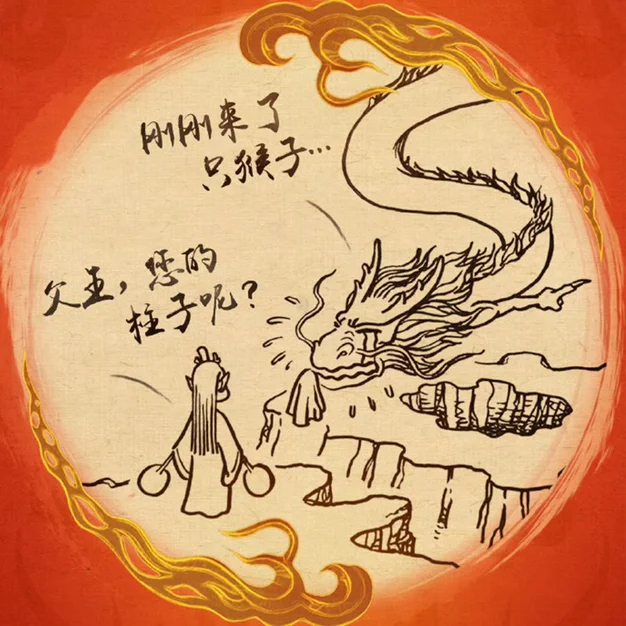 刚刚来了
只猴子…
父王，您的
柱子呢？